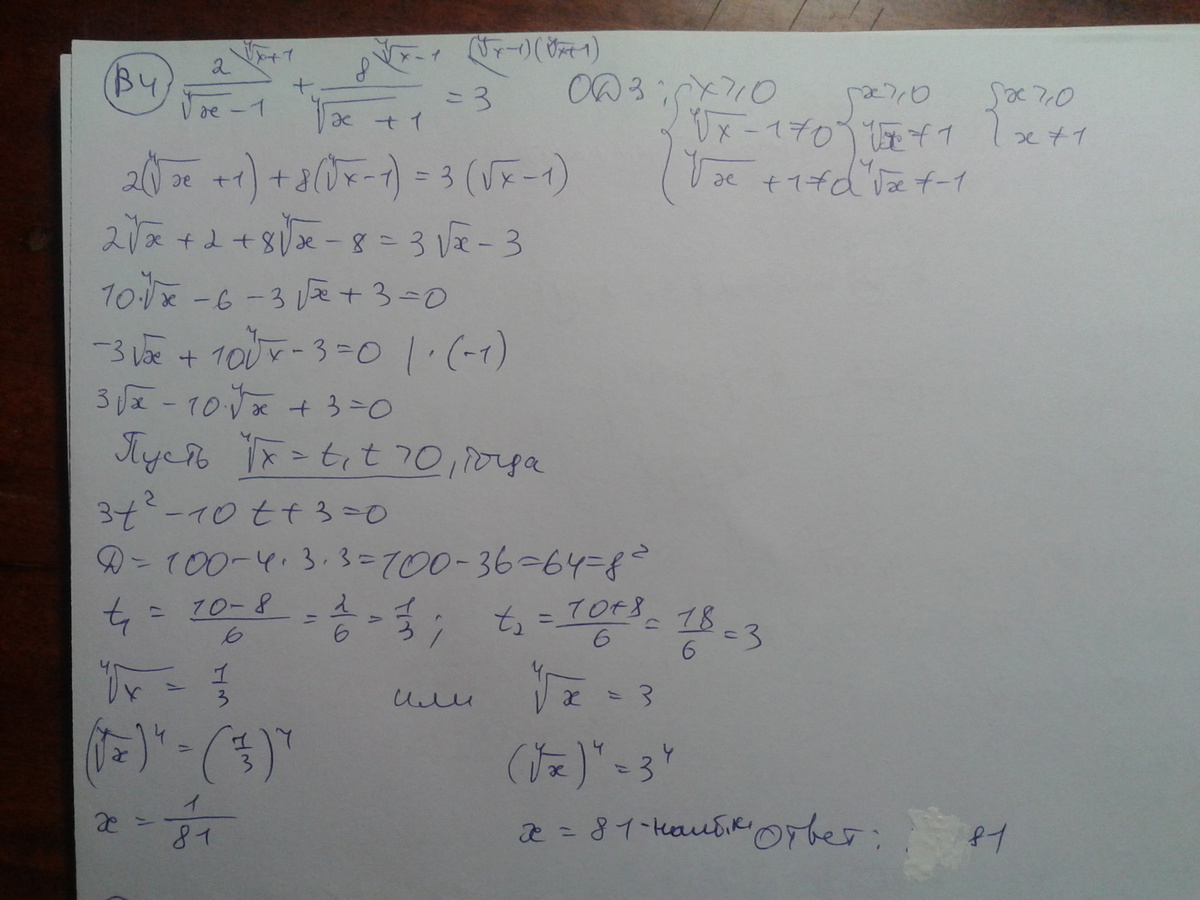 В4 2^(⁴√x+1)/(⁴√x − 1) + 8^(⁴√x−1)/(⁴√x + 1) = 3^((⁴√x−1)(⁴√x+1)) ОДЗ: {x⩾0 {x⩾0 {x⩾0
⁴√x − 1 ≠ 0 ⁴√x ≠ 1 x ≠ 1
⁴√x + 1 ≠ 0 ⁴√x ≠ −1
2(⁴√x + 1) + 8(⁴√x − 1) = 3(√x − 1)
2⁴√x + 2 + 8⁴√x − 8 = 3√x − 3
10·⁴√x − 6 − 3√x + 3 = 0
−3√x + 10⁴√x − 3 = 0 | · (−1)
3√x − 10·⁴√x + 3 = 0
Пусть ⁴√x = t, t > 0, тогда
3t² − 10t + 3 = 0
D = 100 − 4·3·3 = 100 − 36 = 64 = 8²
t₁ = (10−8)/6 = 2/6 = 1/3; t₂ = (10+8)/6 = 18/6 = 3
⁴√x = 1/3 или ⁴√x = 3
(⁴√x)⁴ = (1/3)⁴ (⁴√x)⁴ = 3⁴
x = 1/81 x = 81 - наиб. Ответ: 81